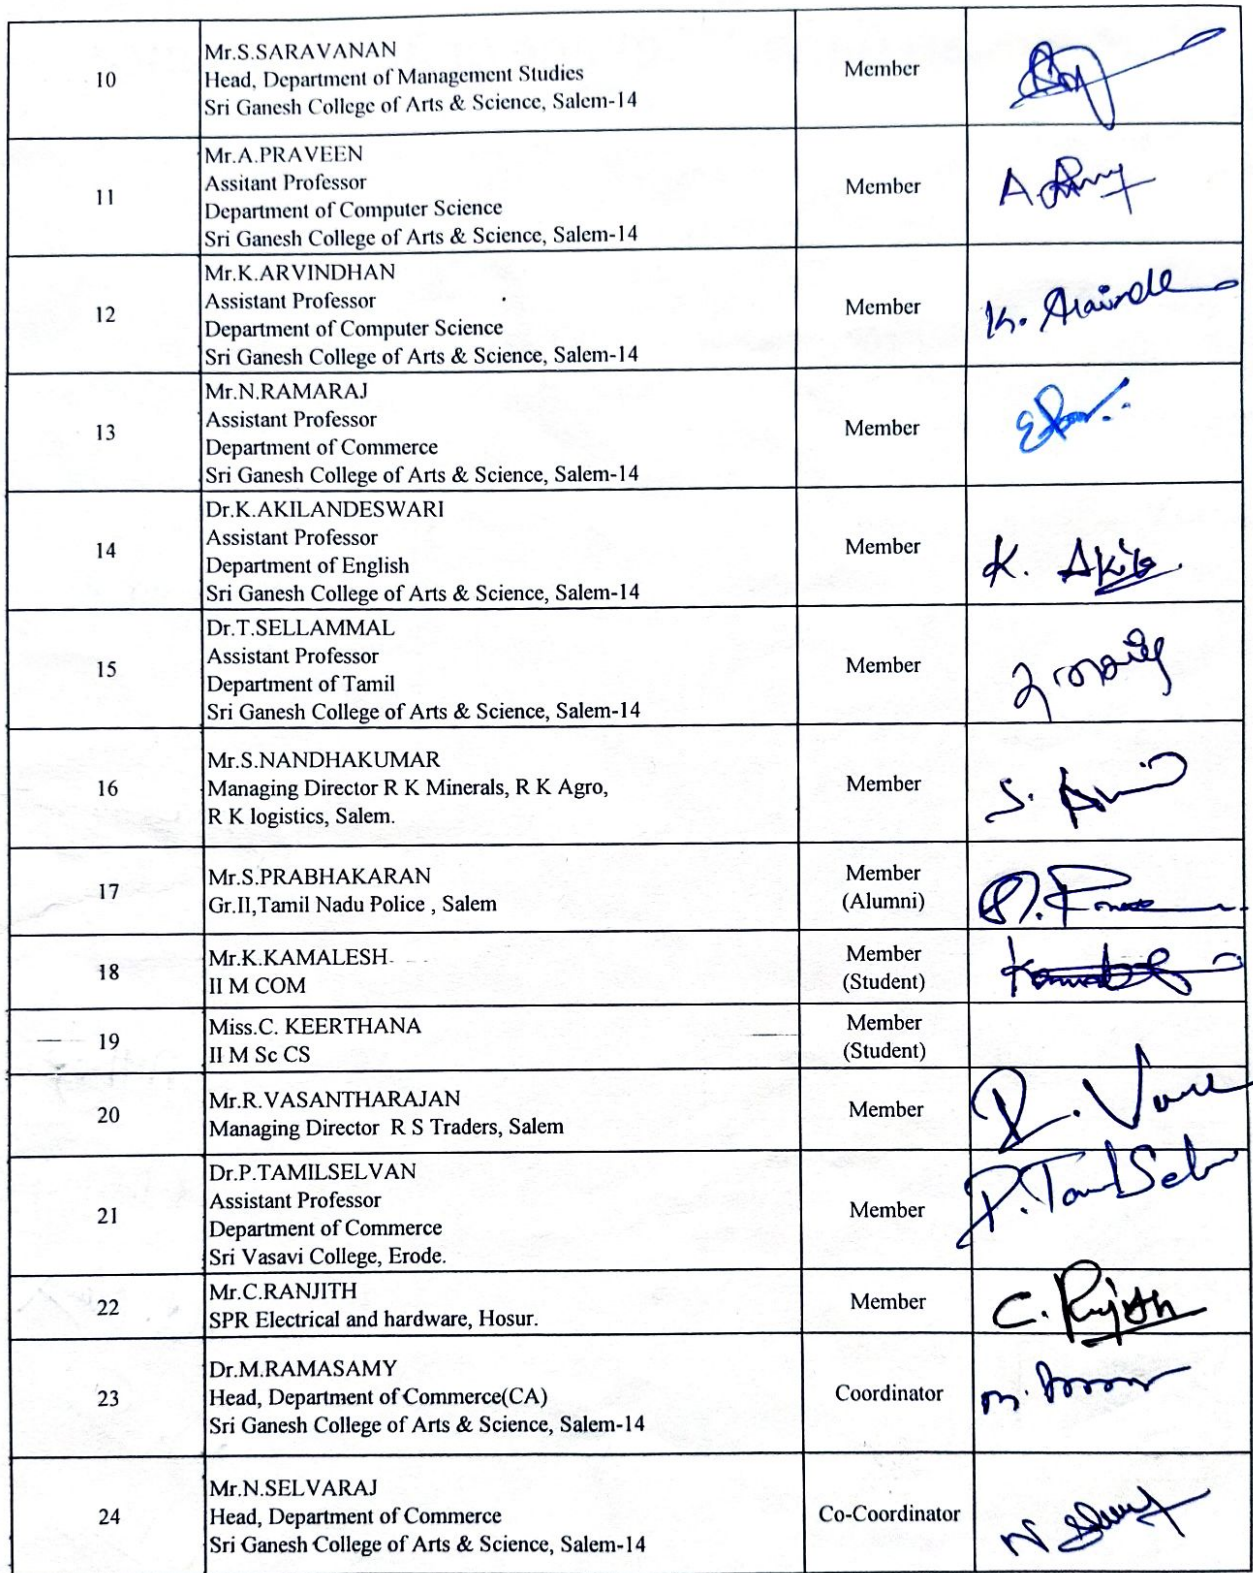 10
Mr.S.SARAVANAN
Head, Department of Management Studies
Sri Ganesh College of Arts & Science, Salem-14
Member
11
Mr.A.PRAVEEN
Assitant Professor
Department of Computer Science
Sri Ganesh College of Arts & Science, Salem-14
Member
A.
12
Mr.K.ARVINDHAN
Assistant Professor
Department of Computer Science
Sri Ganesh College of Arts & Science, Salem-14
Member
K.
13
Mr.N.RAMARAJ
Assistant Professor
Department of Commerce
Sri Ganesh College of Arts & Science, Salem-14
Member
14
Dr.K.AKILANDESWARI
Assistant Professor
Department of English
Sri Ganesh College of Arts & Science, Salem-14
Member
K. Akila
15
Dr.T.SELLAMMAL
Assistant Professor
Department of Tamil
Sri Ganesh College of Arts & Science, Salem-14
Member
16
Mr.S.NANDHAKUMAR
Managing Director R K Minerals, R K Agro,
R K logistics, Salem.
Member
S.
17
Mr.S.PRABHAKARAN
Gr.II,Tamil Nadu Police , Salem
Member
(Alumni)
18
Mr.K.KAMALESH
II M COM
Member
(Student)
19
Miss.C. KEERTHANA
II M Sc CS
Member
(Student)
20
Mr.R.VASANTHARAJAN
Managing Director R S Traders, Salem
Member
R.
21
Dr.P.TAMILSELVAN
Assistant Professor
Department of Commerce
Sri Vasavi College, Erode.
Member
P.
22
Mr.C.RANJITH
SPR Electrical and hardware, Hosur.
Member
C.
23
Dr.M.RAMASAMY
Head, Department of Commerce(CA)
Sri Ganesh College of Arts & Science, Salem-14
Coordinator
m.
24
Mr.N.SELVARAJ
Head, Department of Commerce
Sri Ganesh College of Arts & Science, Salem-14
Co-Coordinator
N